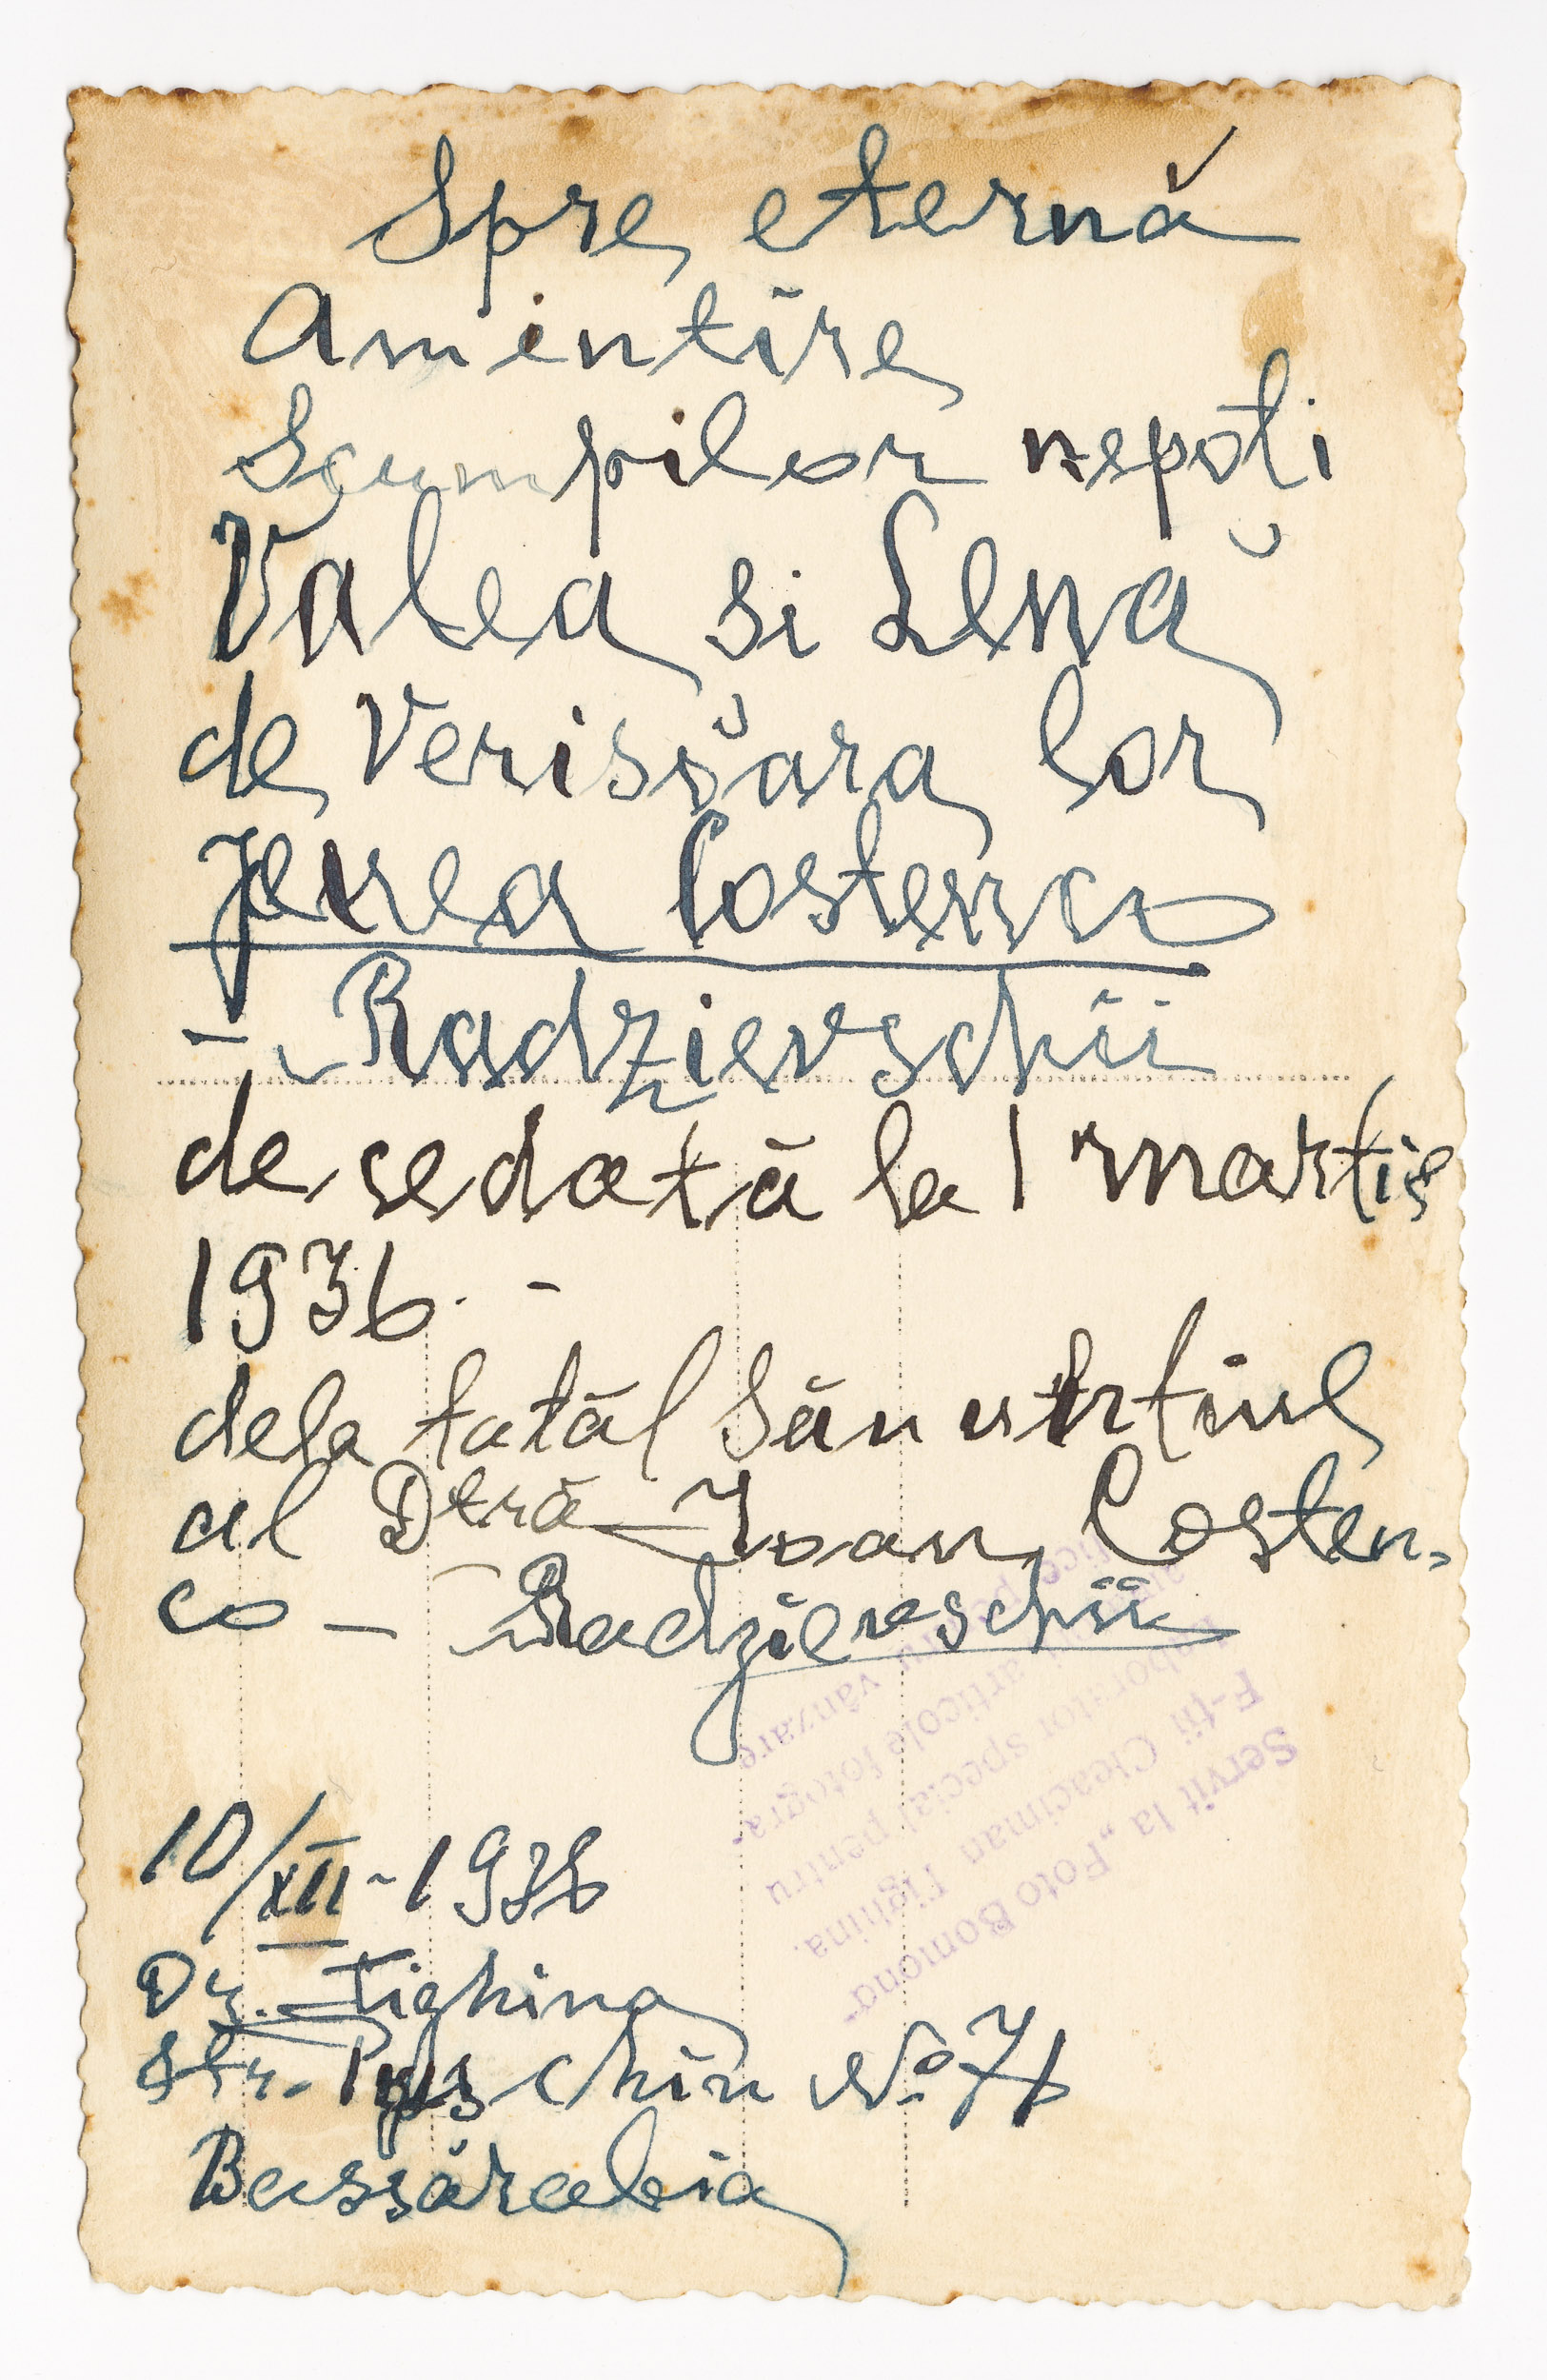 Spre eternă
Amintire
Scumpilor nepoți
Valea si Lenă
de Verisšara lor
Jenea Costenco
- Radzievschii
decedată la 1 martie
1936. -
dela tatăl său
al Dtră Ivan Costen-
co - Radzievschii
10/XII-1936
Tighina
Str. Puschin No 71
Bassărabia
Servit la „Foto Bomond"
F-ții Cleaciman Tighina.
Laborator special pentru
articole fotogra-
vânzare